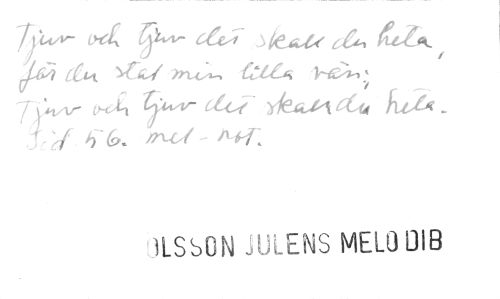 Tjuv och tjuv det skall du heta,
för du stal min lilla vän;
Tjuv och tjuv det skall du heta.
Sid 56. mel-not.
OLSSON JULENS MELODIB